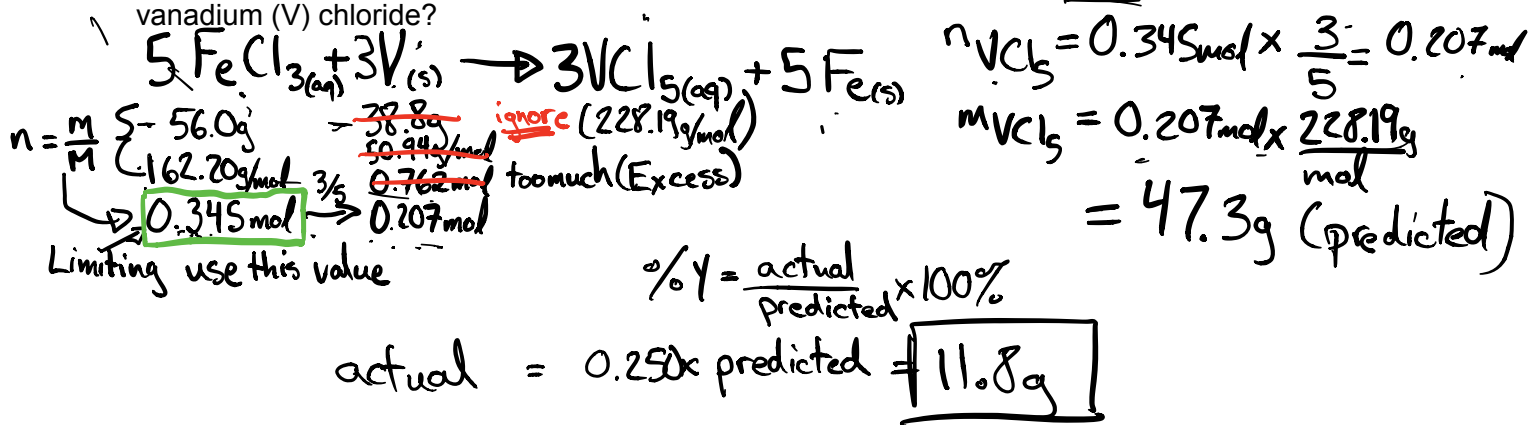 vanadium (V) chloride?
5FeCl3(aq) + 3V(s) → 3VCl5(aq) + 5Fe(s)
n = m/M { - 56.0g - 38.8g ignore (228.19g/mol)
162.20g/mol 50.94g/mol
0.762mol too much (Excess)
0.345 mol 3/5 → 0.207mol
Limiting use this value
nVCl5 = 0.345mol x 3/5 = 0.207mol
mVCl5 = 0.207mol x 228.19g/mol
= 47.3g (predicted)
%Y = actual/predicted x 100%
actual = 0.250x predicted = 11.8g